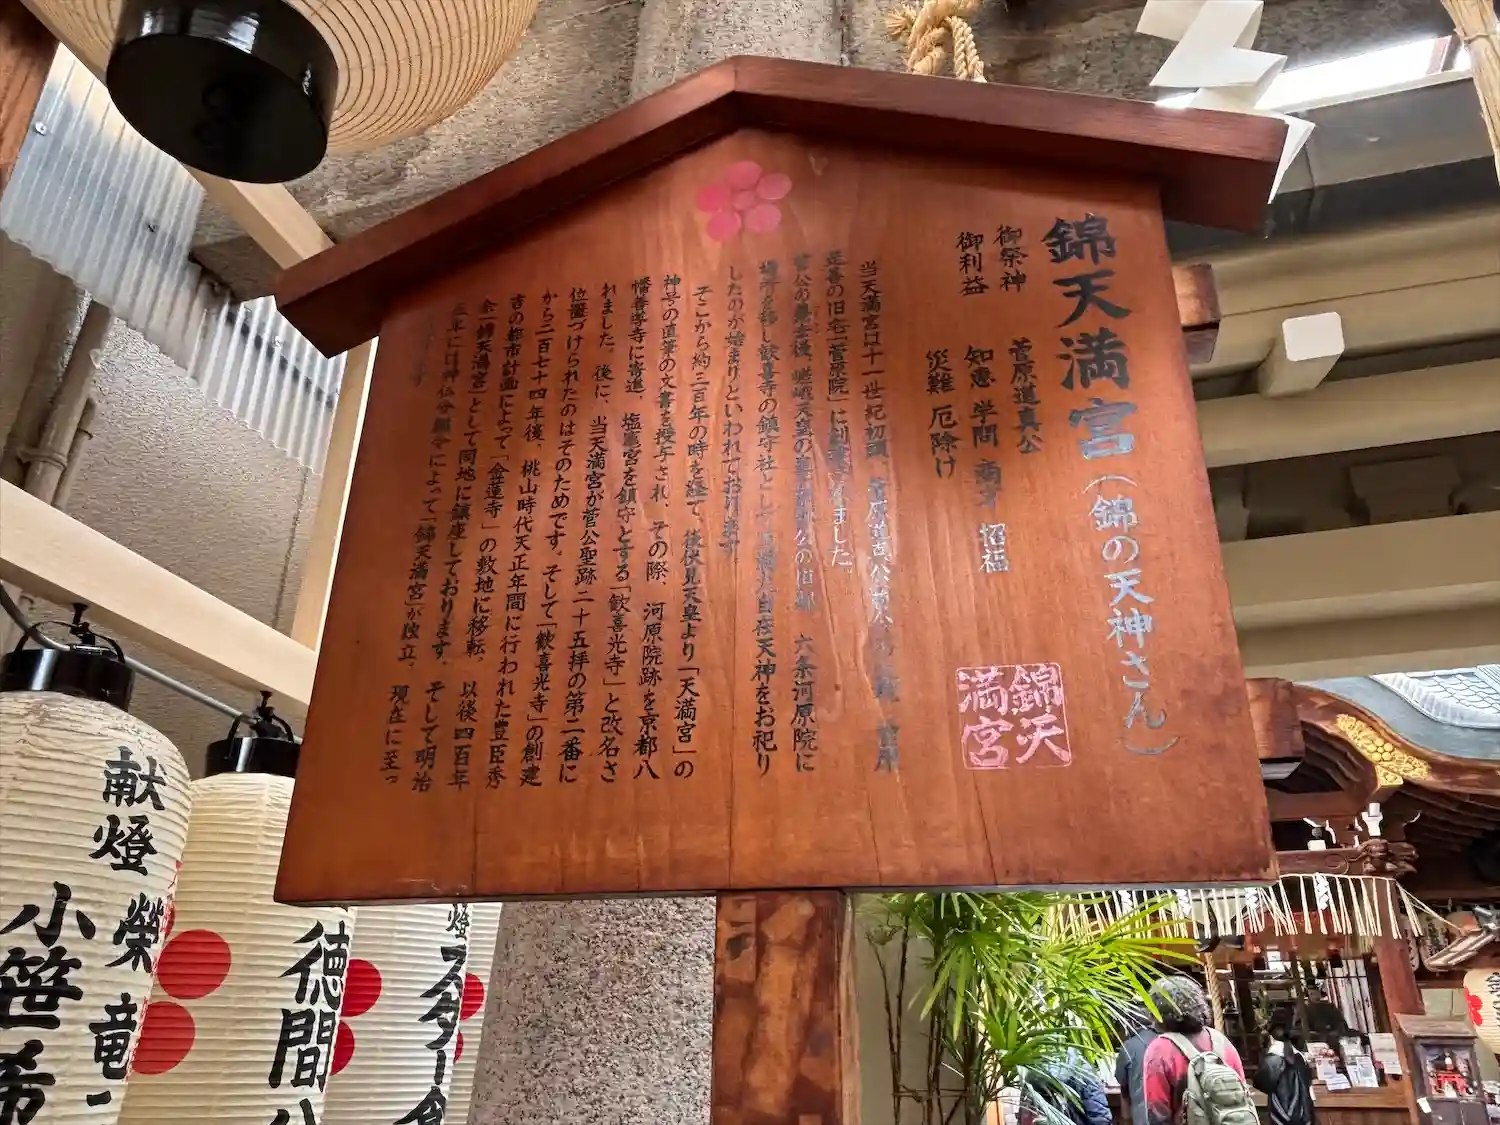 錦天満宮(錦の天神さん)
御祭神 菅原道真公
御利益 知恵 学問 商才 招福
災難 厄除け
錦天
満宮
当天満宮は十一世紀初頭、菅原道真公
の旧宅「菅原院」に創建されました。
菅公の 後、嵯峨天皇の 公の旧邸 六条河原院に
場所を移し歓喜寺の鎮守社として 天満大自在天神をお祀り
したのが始まりといわれております。
そこから約三百年の時を経て、後伏見天皇より「天満宮」の
神号の直筆の文書を授与され、その際、河原院跡を京都八
幡善導寺に寄進、塩竈宮を鎮守とする「歓喜光寺」と改名さ
れました。後に、当天満宮が菅公聖跡二十五拝の第二番に
位置づけられたのはそのためです。そして「歓喜光寺」の創建
から二百七十四年後、桃山時代天正年間に行われた豊臣秀
吉の都市計画によって「金蓮寺」の敷地に移転、以後四百年
余「錦天満宮」として同地に鎮座しております。そして明治
五年には神仏分離令によって「錦天満宮」が独立、現在に至っ
ております
献燈 榮 竜
小笹 希
徳間
燈 スター食